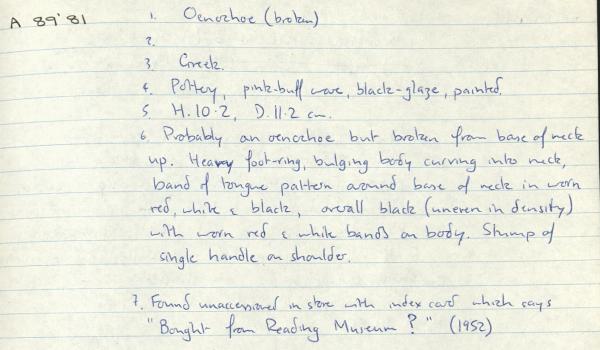 A 89'81
1. Oenochoe (broken)
2.
3 Greek.
4. Pottery, pink-buff ware, black-glaze, painted.
5. H. 10.2, D. 11.2 cm.
6. Probably an oenochoe but broken from base of neck
up. Heavy foot-ring, bulging body curving into neck,
band of tongue pattern around base of neck in worn
red, white & black, overall black (uneven in density)
with worn red & white bands on body. Stump of
single handle on shoulder.
7. Found unaccessioned in store with index card which says
"Bought from Reading Museum?" (1952)